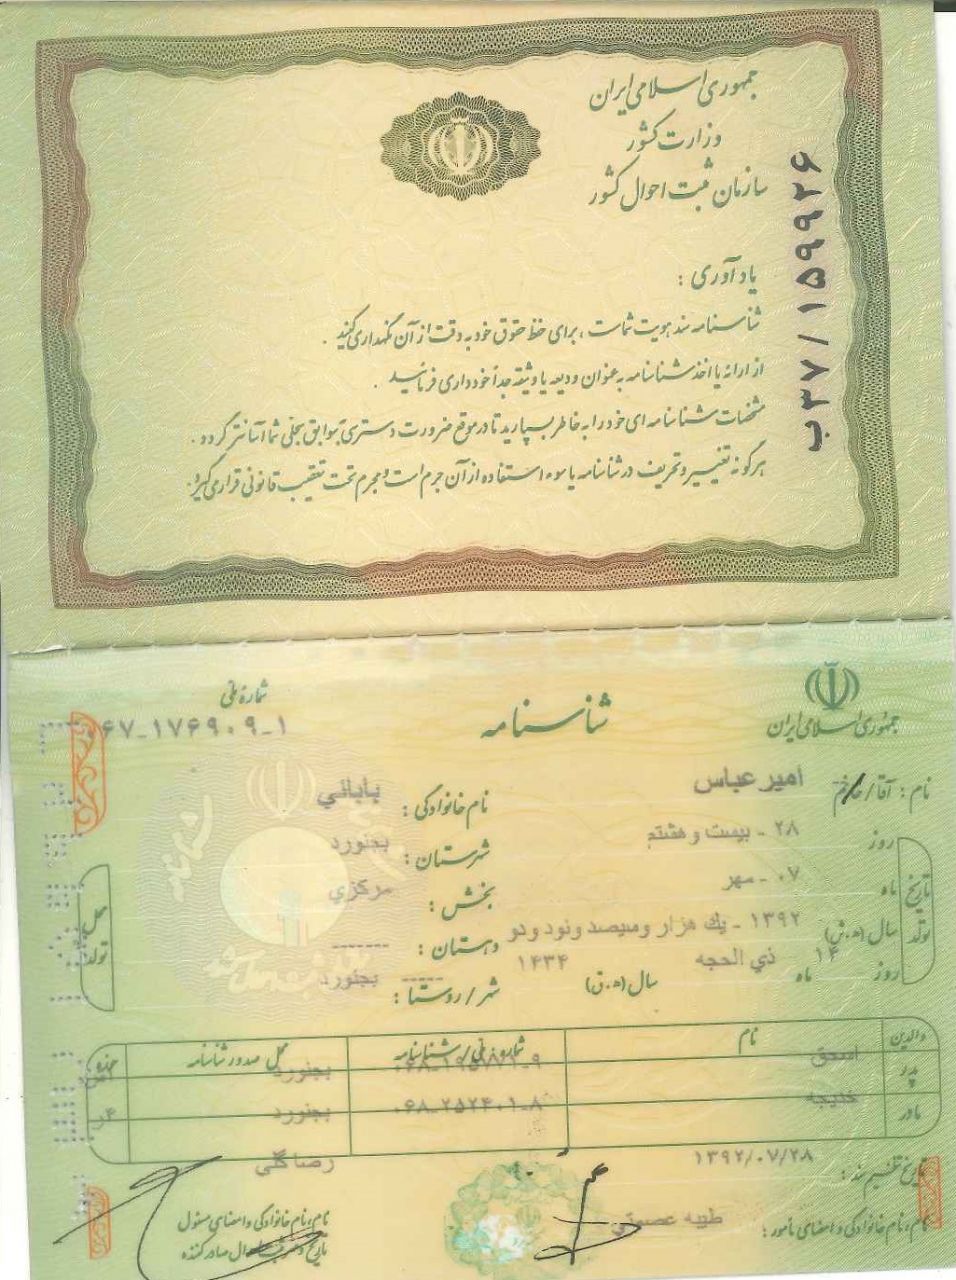 جمهوری اسلامی ایران
وزارت کشور
سازمان ثبت احوال کشور
ب۳۷/۱۵۹۹۲۶
یادآوری :
شناسنامه سند هویت شماست ، برای حفظ حقوق خود به دقت از آن نگهداری کنید .
از ارائه یا اخذ شناسنامه به عنوان ودیعه یا وثیقه جداً خودداری فرمائید .
مشخصات شناسنامه ای خود را به خاطر بسپارید تا در موقع ضرورت دسترسی به سوابق سجلی شما آسانتر گردد .
هرگونه تغییر و تحریف در شناسنامه یا سوء استفاده از آن جرم است و مجرم تحت تعقیب قانونی قرار می گیرد .
جمهوری اسلامی ایران
شناسنامه
شماره ملی
۶۷-۱۷۶۹۰۹-۱
نام : آقا / خانم امیر عباس
نام خانوادگی : بابائي
روز ۲۸ - بیست و هشتم
شهرستان : بجنورد
تاریخ تولد
ماه ۰۷ - مهر
بخش : مرکزي
محل تولد
سال (ه.ش) ۱۳۹۲ - یك هزار و سیصد و نود و دو
دهستان : -------
روز ۱۴ ماه ذي الحجه سال (ه.ق) ۱۴۳۴
شهر / روستا : ----- بجنورد
والدین نام شماره ملی / شناسنامه محل صدور شناسنامه حوزه
پدر اسحق ۰۶۸-۱۹۵۸۷۱-۹ بجنورد
مادر خدیجه ۰۶۸-۲۵۲۴۰۱-۸ بجنورد
تاریخ تنظیم سند : ۱۳۹۲/۰۷/۲۸
رضا گلي
نام ، نام خانوادگی و امضای مامور : طیبه عصمتي
نام ، نام خانوادگی و امضای مسئول